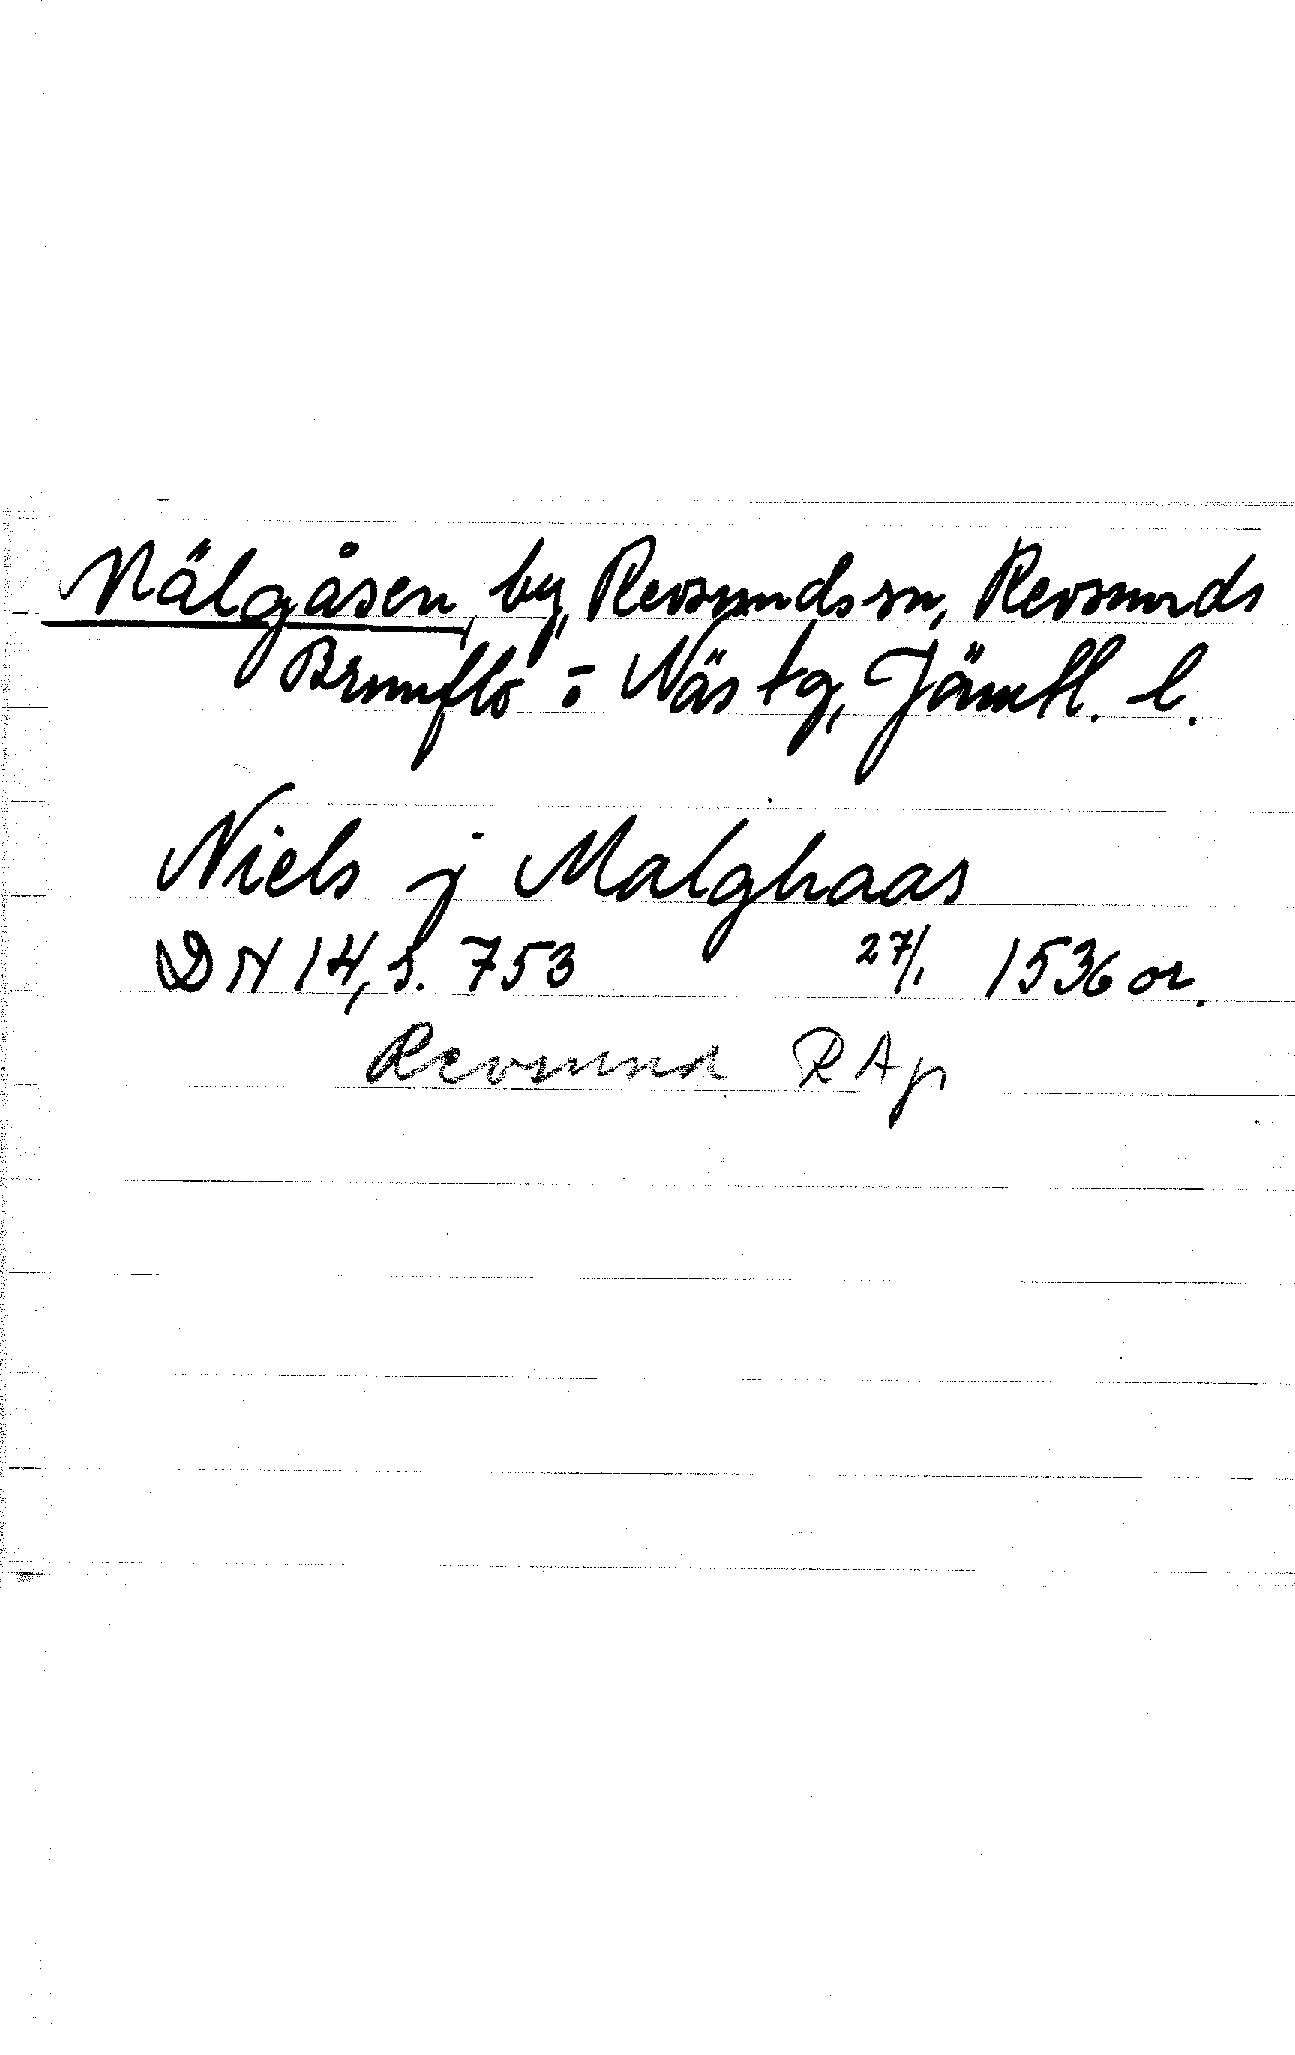 Mälgåsen, by, Revsunds sn, Revsunds
Brunflo o Näs tg, Jämtl. l.
Niels j Malghaas
DN 14, s. 753 27/1 1536 or.
Revsund RAp